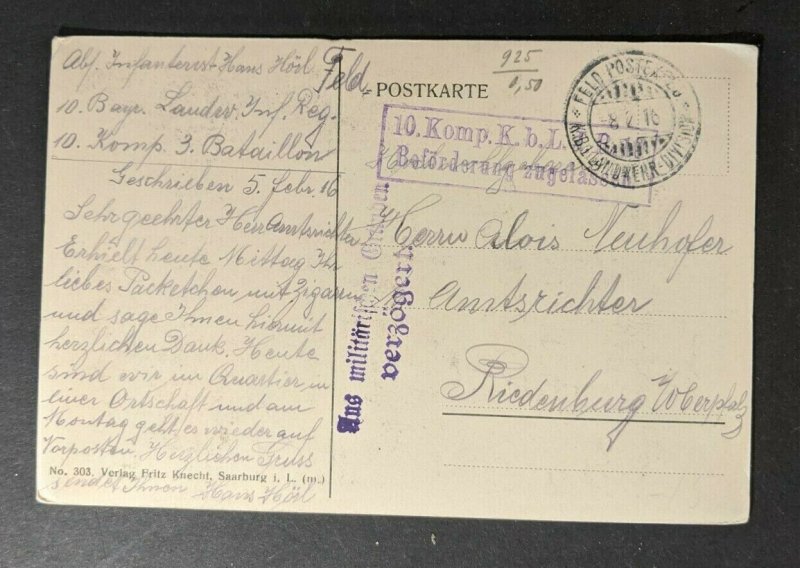 Abs. Infanterist Hans Hörl
10. Bayr. Landw. Inf. Reg.
10. Komp. 3. Bataillon
Geschrieben 5. Febr. 16
Sehrgeehrter Herr Amtsrichter
Erhielt heute Mittag Ihr
liebes Packetchen mit Zigarren
und sage Ihnen hiermit
herzlichen Dank. Heute
sind wir im Quartier in
einer Ortschaft und am
Montag geht es wieder auf
Vorposten. Herzlichen Gruss
sendet Ihnen Hans Hörl
No. 303. Verlag Fritz Knecht, Saarburg i. L. (m.)
Feld
POSTKARTE
925
0,50
FELDPOSTEXP. D.
8. 2. 16
K.B. LANDWEHR-DIVISION
10. Komp. K. b. L.
Beförderung zugelassen
Aus militärischen Gründen
verzögert.
Herrn Alois Neuhofer
Amtsrichter
Riedenburg
Oberpfalz